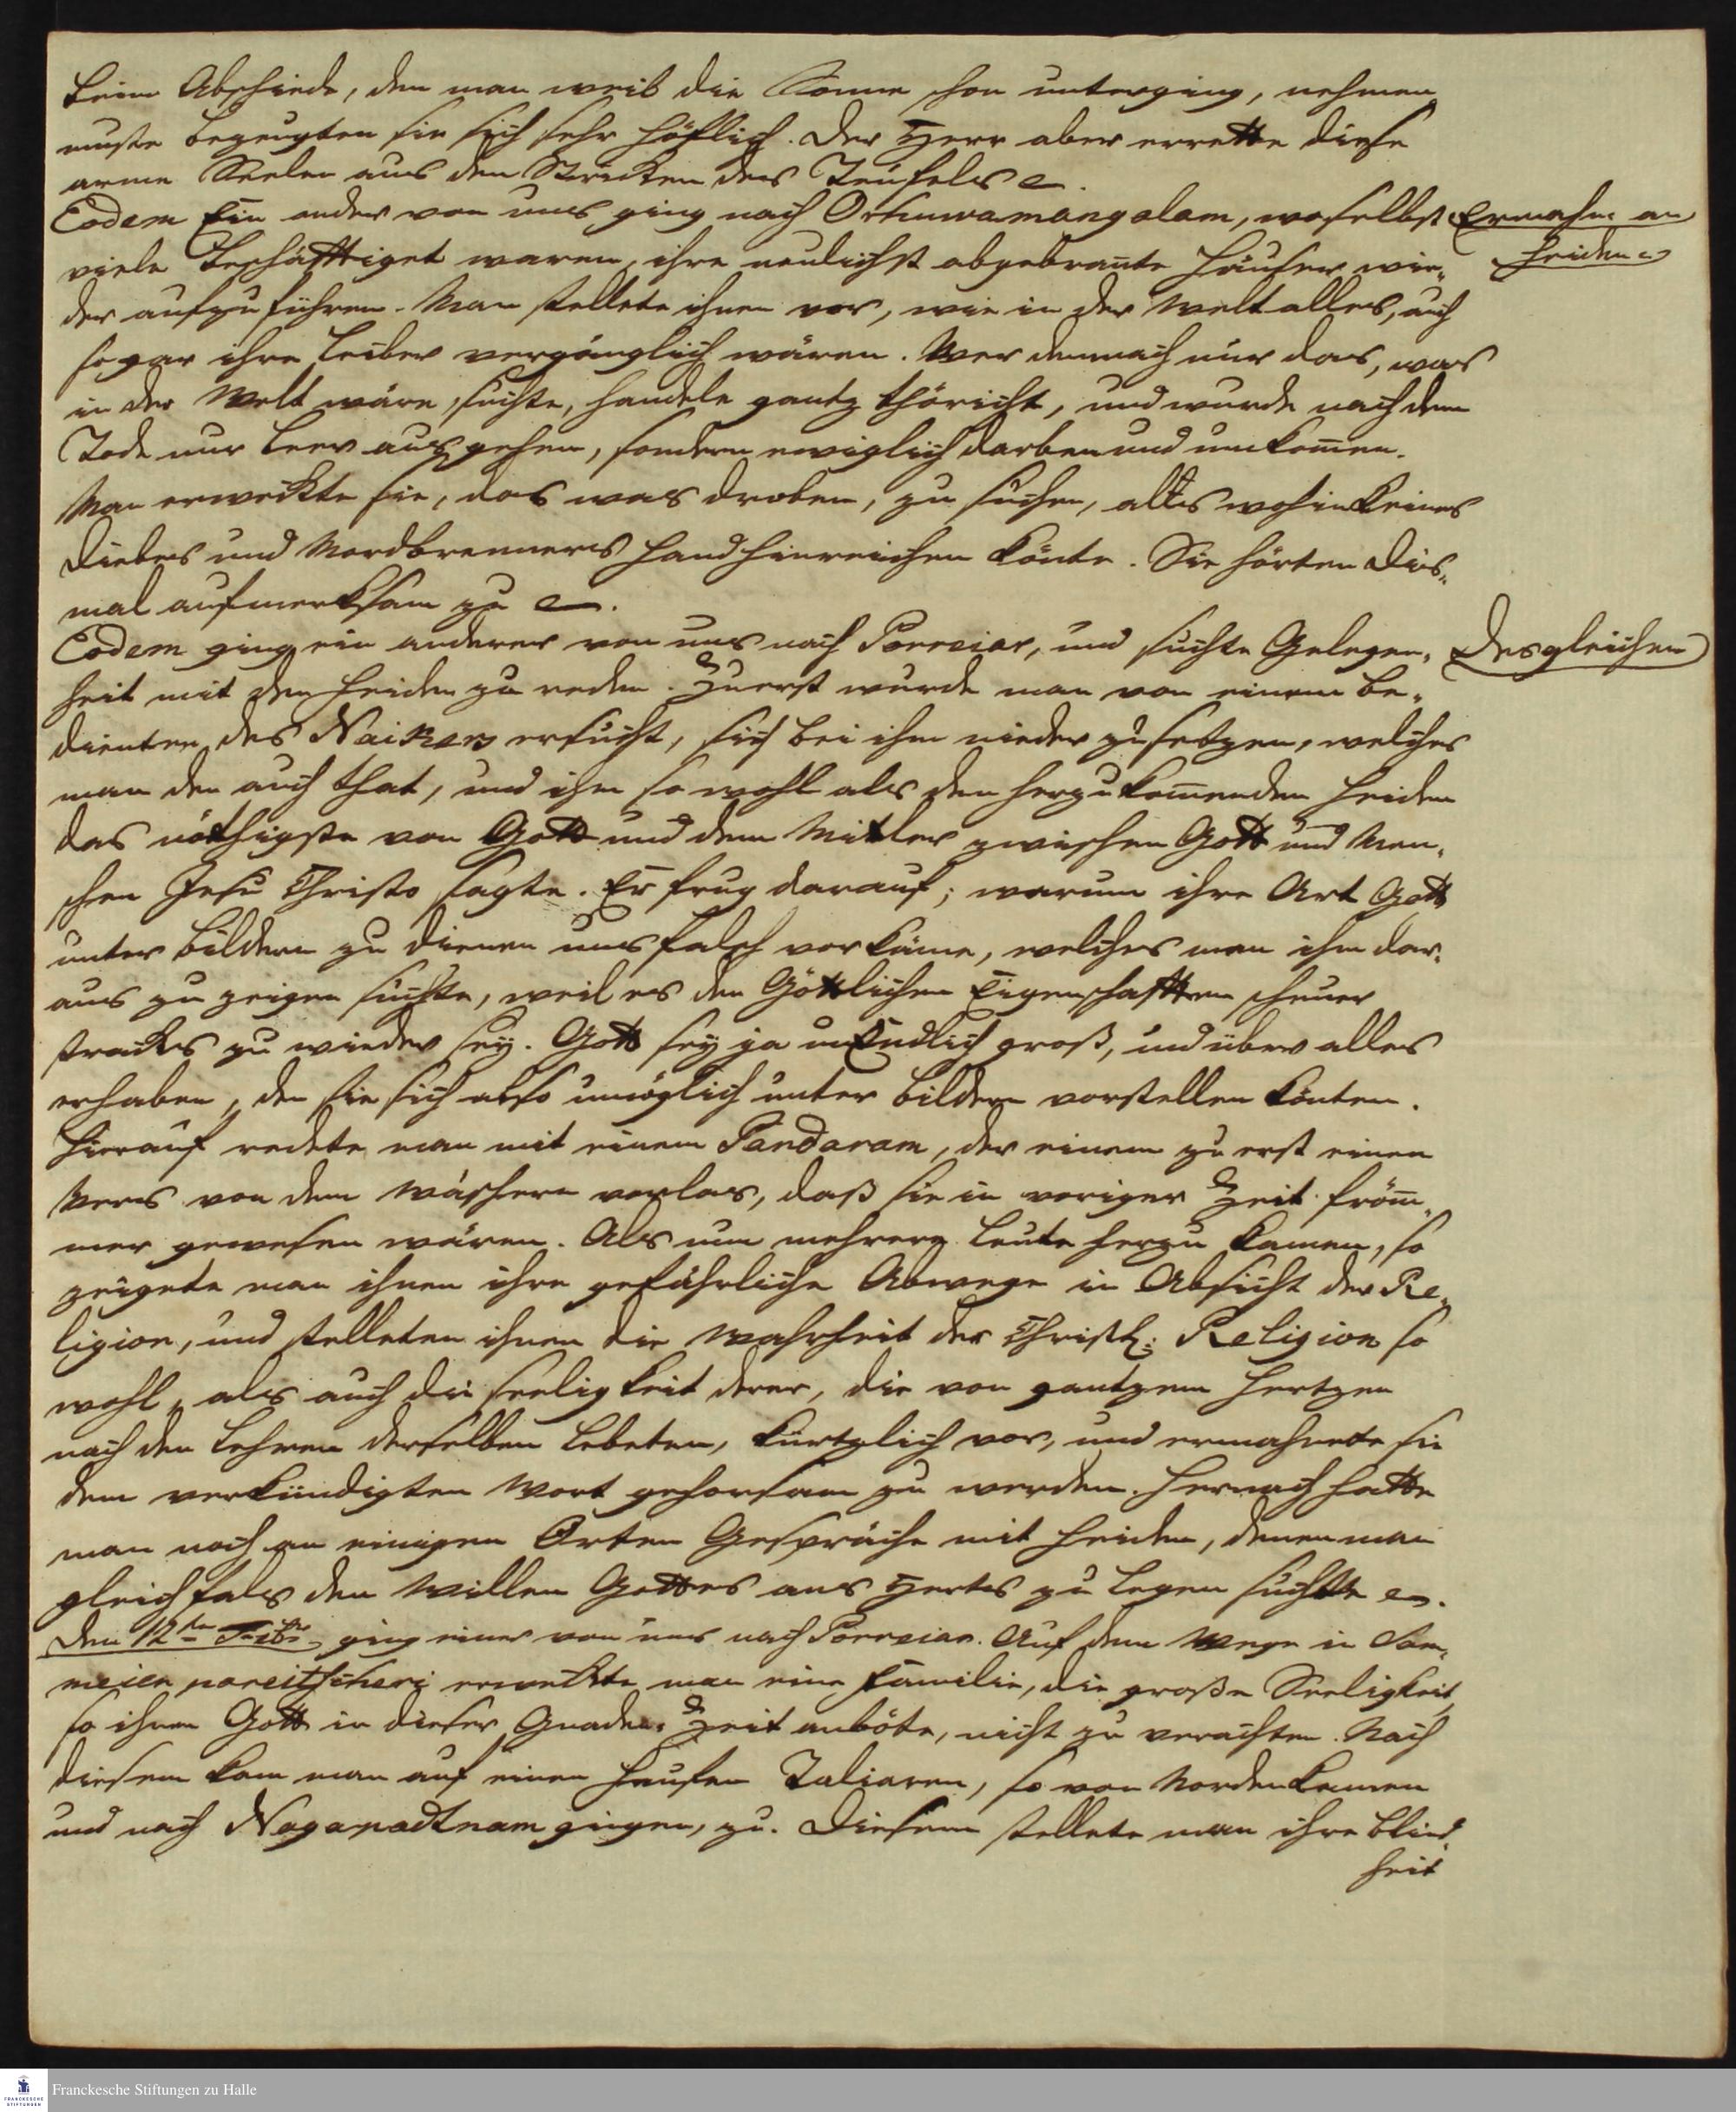 beim Abschiede, den man weil die Sonne schon unterging, nehmen
muste bezeugten sie sich sehr höflich. Der Herr aber errette diese
arme Seelen aus den Stricken des Teufels
Eodem Ein ander von uns ging nach Orhuwamangalam, woselbst
Ermahn. an
Heiden
viele beschäfftiget waren, ihre neulichst abgebrante Häuser wie-
der aufzuführen. Man stellete ihnen vor, wie in der Welt alles, auch
so gar ihre Leiber vergänglich wären. Wer demnach nur das, was
in der Welt wäre, suchte, handele gantz thöricht, und wurde nach dem
Tode nur leer ausgehen, sondern ewiglich darben und umkom̅en.
Man erweckte sie, das was droben, zu suchen, alls wohin keines
Diebes und Mordbrenners Hand hinreichen könte. Sie hörten dies-
mal aufmerksam zu
Eodem ging ein anderer von uns nach Porreiar, und suchte Gelegen-
Desgleichen
heit mit den Heiden zu reden. Zuerst wurde man von einem be-
dienten des Naikers ersucht, sich bei ihm nieder zu setzen, welches
man den auch that, und ihm so wohl als den herzukom̅enden Heiden
das nöthigste von Gott und dem Mitler zwischen Gott und Men-
schen Jesu Christo sagte. Er frug darauf; warum ihre Art Gott
unter Bildern zu dienen uns falsch vorkäme, welches man ihm dar-
aus zu zeigen suchte, weil es den Göttlichen Eigenschafften schnur
stracks zu wieder sey. Gott sey ja unEndlich groß, und über alles
erhaben, den sie sich also unmöglich unter Bildern vorstellen könten.
Hierauf redete man mit einem Pandaram, der einem zu erst einen
Vers von den Wäschern vorlas, daß sie in voriger Zeit from̅-
mer gewesen wären. Als nun mehrere Leute herzu kamen, so
zeigete man ihnen ihre gefährliche Abwege in Absicht der Re-
ligion, und stelleten ihnen die Wahrheit der Christl: Religion so
wohl, als auch die Seeligkeit derer, die von gantzem Hertzen
nach den Lehren derselben lebeten, kürtzlich vor, und ermahnete sie
dem verkündigten Wort gehorsam zu werden. Hernach hatte
man noch an einigen Orten Gespräche mit Heiden, denen man
gleichfals den Willen Gottes ans Hertz zu legen suchte
den 12ten ging einer von uns nach Porreiar. Auf dem Wege in Sam-
meien pareitscheri erweckte man eine Familie, die große Seeligkeit,
so ihnen Gott in dieser Gnaden-Zeit anböte, nicht zu verachten. Nach
diesem kam man auf einen Haufen Taliaren, so von Norden kamen
und nach Nagapadtnam gingen, zu. Diesem stellete man ihre Blind-
heit
Franckesche Stiftungen zu Halle
FRANCKESCHE
STIFTUNGEN